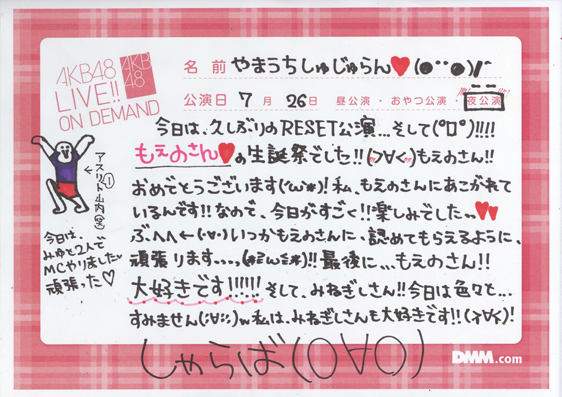 AKB48
LIVE!!
ON DEMAND
AKB
48
名前 やまうちしゅじゅらん♥(●¨●)/
公演日 7月 26日 昼公演・おやつ公演・夜公演
今日は、久しぶりのRESET公演...そして(°ロ°)!!!!
もえのさん♥の生誕祭でした!!(">∀<)もえのさん!!
おめでとうございます(*'ω'*)! 私、もえのさんにあこがれて
いるんです!! なので、今日がすごく!!楽しみでした♥
ぶへへ←(・∀・)いつかもえのさんに、認めてもらえるように、
頑張ります!! 最後に...もえのさん!!
大好きです!!!!!! そして、みねぎしさん!!今日は色々と...
すみません(;∀;;)w私は、みねぎしさんも大好きです!!(>∀<)!
しゃらば(○∀○)
アスリート山内(笑)
①
今日は、
みゆと2人で
MCやりました
頑張った♡
DMM.com